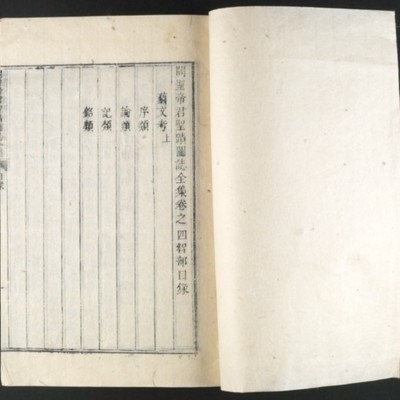 關聖帝君聖蹟圖誌全集卷之四智部目錄
藝文考上
序類
論類
記類